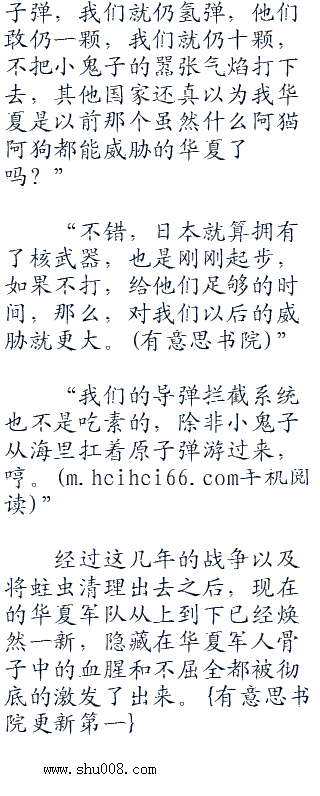 子弹，我们就仍氢弹，他们
敢仍一颗，我们就仍十颗，
不把小鬼子的嚣张气焰打下
去，其他国家还真以为我华
夏是以前那个虽然什么阿猫
阿狗都能威胁的华夏了
吗？”
“不错，日本就算拥有
了核武器，也是刚刚起步，
如果不打，给他们足够的时
间，那么，对我们以后的威
胁就更大。(有意思书院)”
“我们的导弹拦截系统
也不是吃素的，除非小鬼子
从海里扛着原子弹游过来，
哼。(m.hcihci66.com手机阅
读)”
经过这几年的战争以及
将蛀虫清理出去之后，现在
的华夏军队从上到下已经焕
然一新，隐藏在华夏军人骨
子中的血腥和不屈全都被彻
底的激发了出来。{有意思书
院更新第一}
www.shu008.com